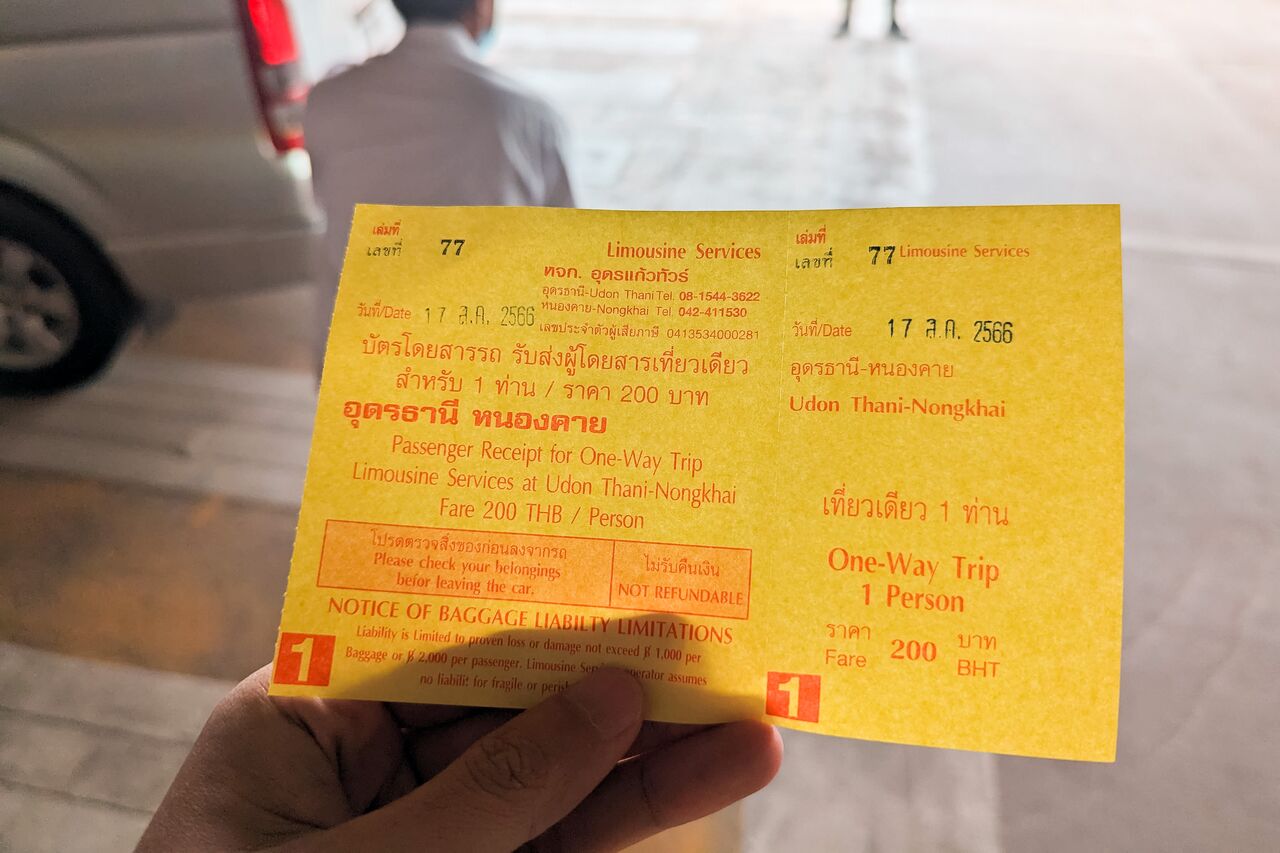 เล่มที่
เลขที่ 77
Limousine Services
หจก. อุดรแก้วทัวร์
อุดรธานี-Udon Thani Tel. 08-1544-3622
หนองคาย-Nongkhai Tel. 042-411530
เลขประจำตัวผู้เสียภาษี 0413534000281
วันที่/Date 17 ส.ค. 2566
บัตรโดยสารรถ รับส่งผู้โดยสารเที่ยวเดียว
สำหรับ 1 ท่าน / ราคา 200 บาท
อุดรธานี หนองคาย
Passenger Receipt for One-Way Trip
Limousine Services at Udon Thani-Nongkhai
Fare 200 THB / Person
โปรดตรวจสิ่งของก่อนลงจากรถ
Please check your belongings
befor leaving the car.
ไม่รับคืนเงิน
NOT REFUNDABLE
NOTICE OF BAGGAGE LIABILTY LIMITATIONS
Liability is Limited to proven loss or damage not exceed ฿ 1,000 per
Baggage or ฿ 2,000 per passenger. Limousine operator assumes
no for fragile or
1
เล่มที่
เลขที่ 77 Limousine Services
วันที่/Date 17 ส.ค. 2566
อุดรธานี-หนองคาย
Udon Thani-Nongkhai
เที่ยวเดียว 1 ท่าน
One-Way Trip
1 Person
ราคา 200 บาท
Fare BHT
1